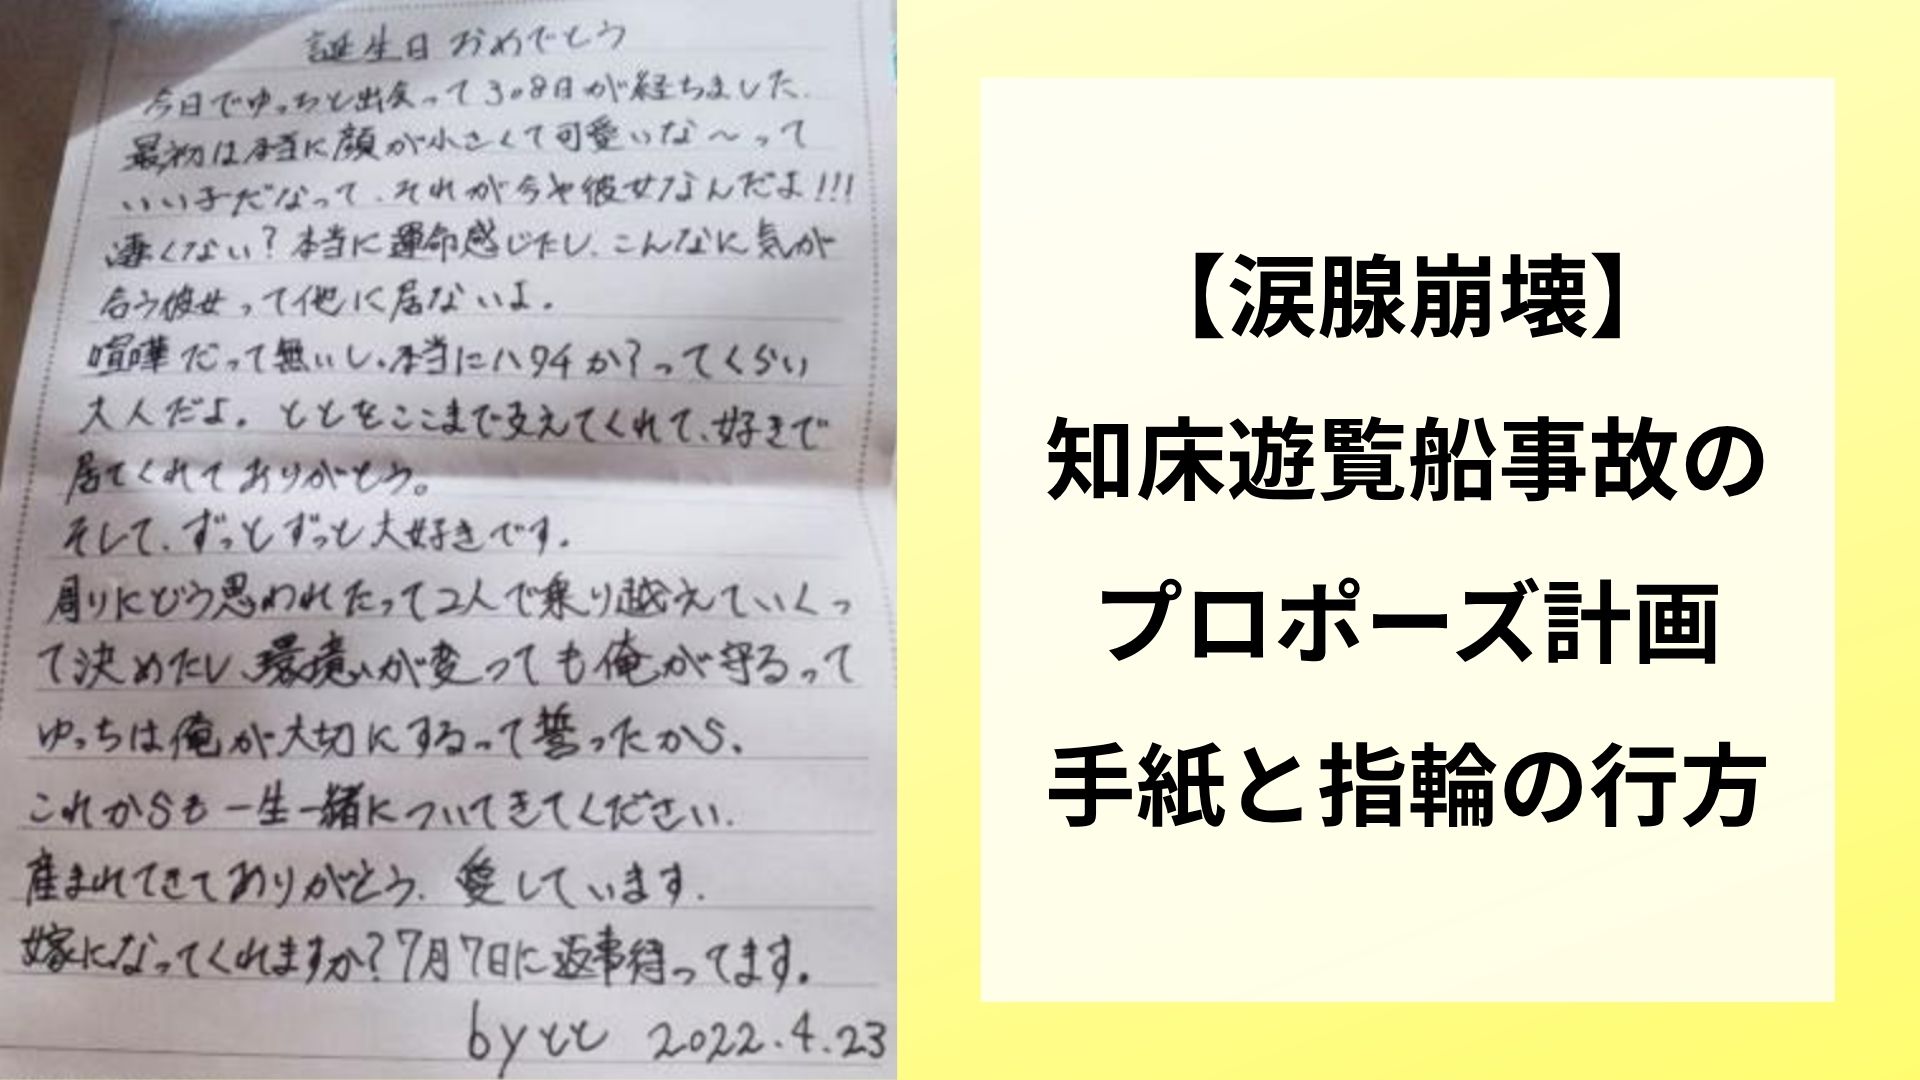 誕生日おめでとう
今日でゆっちと出会って308日が経ちました.
最初は本当に顔が小さくて可愛いな〜って
いい子だなって、それが今や彼女なんだよ!!!
凄くない?本当に運命感じたし、こんなに気が
合う彼女って他に居ないよ。
喧嘩だって無いし、本当にハタチか?ってくらい
大人だよ。ととをここまで支えてくれて、好きで
居てくれてありがとう。
そして、ずっとずっと大好きです。
周りにどう思われたって2人で乗り越えていくっ
て決めたし、環境が変っても俺が守るって
ゆっちは俺が大切にするって誓ったから、
これからも一生一緒についてきてください.
産まれてきてありがとう.愛しています.
嫁になってくれますか?7月7日に返事待ってます。
byとと 2022.4.23
【涙腺崩壊】
知床遊覧船事故の
プロポーズ計画
手紙と指輪の行方